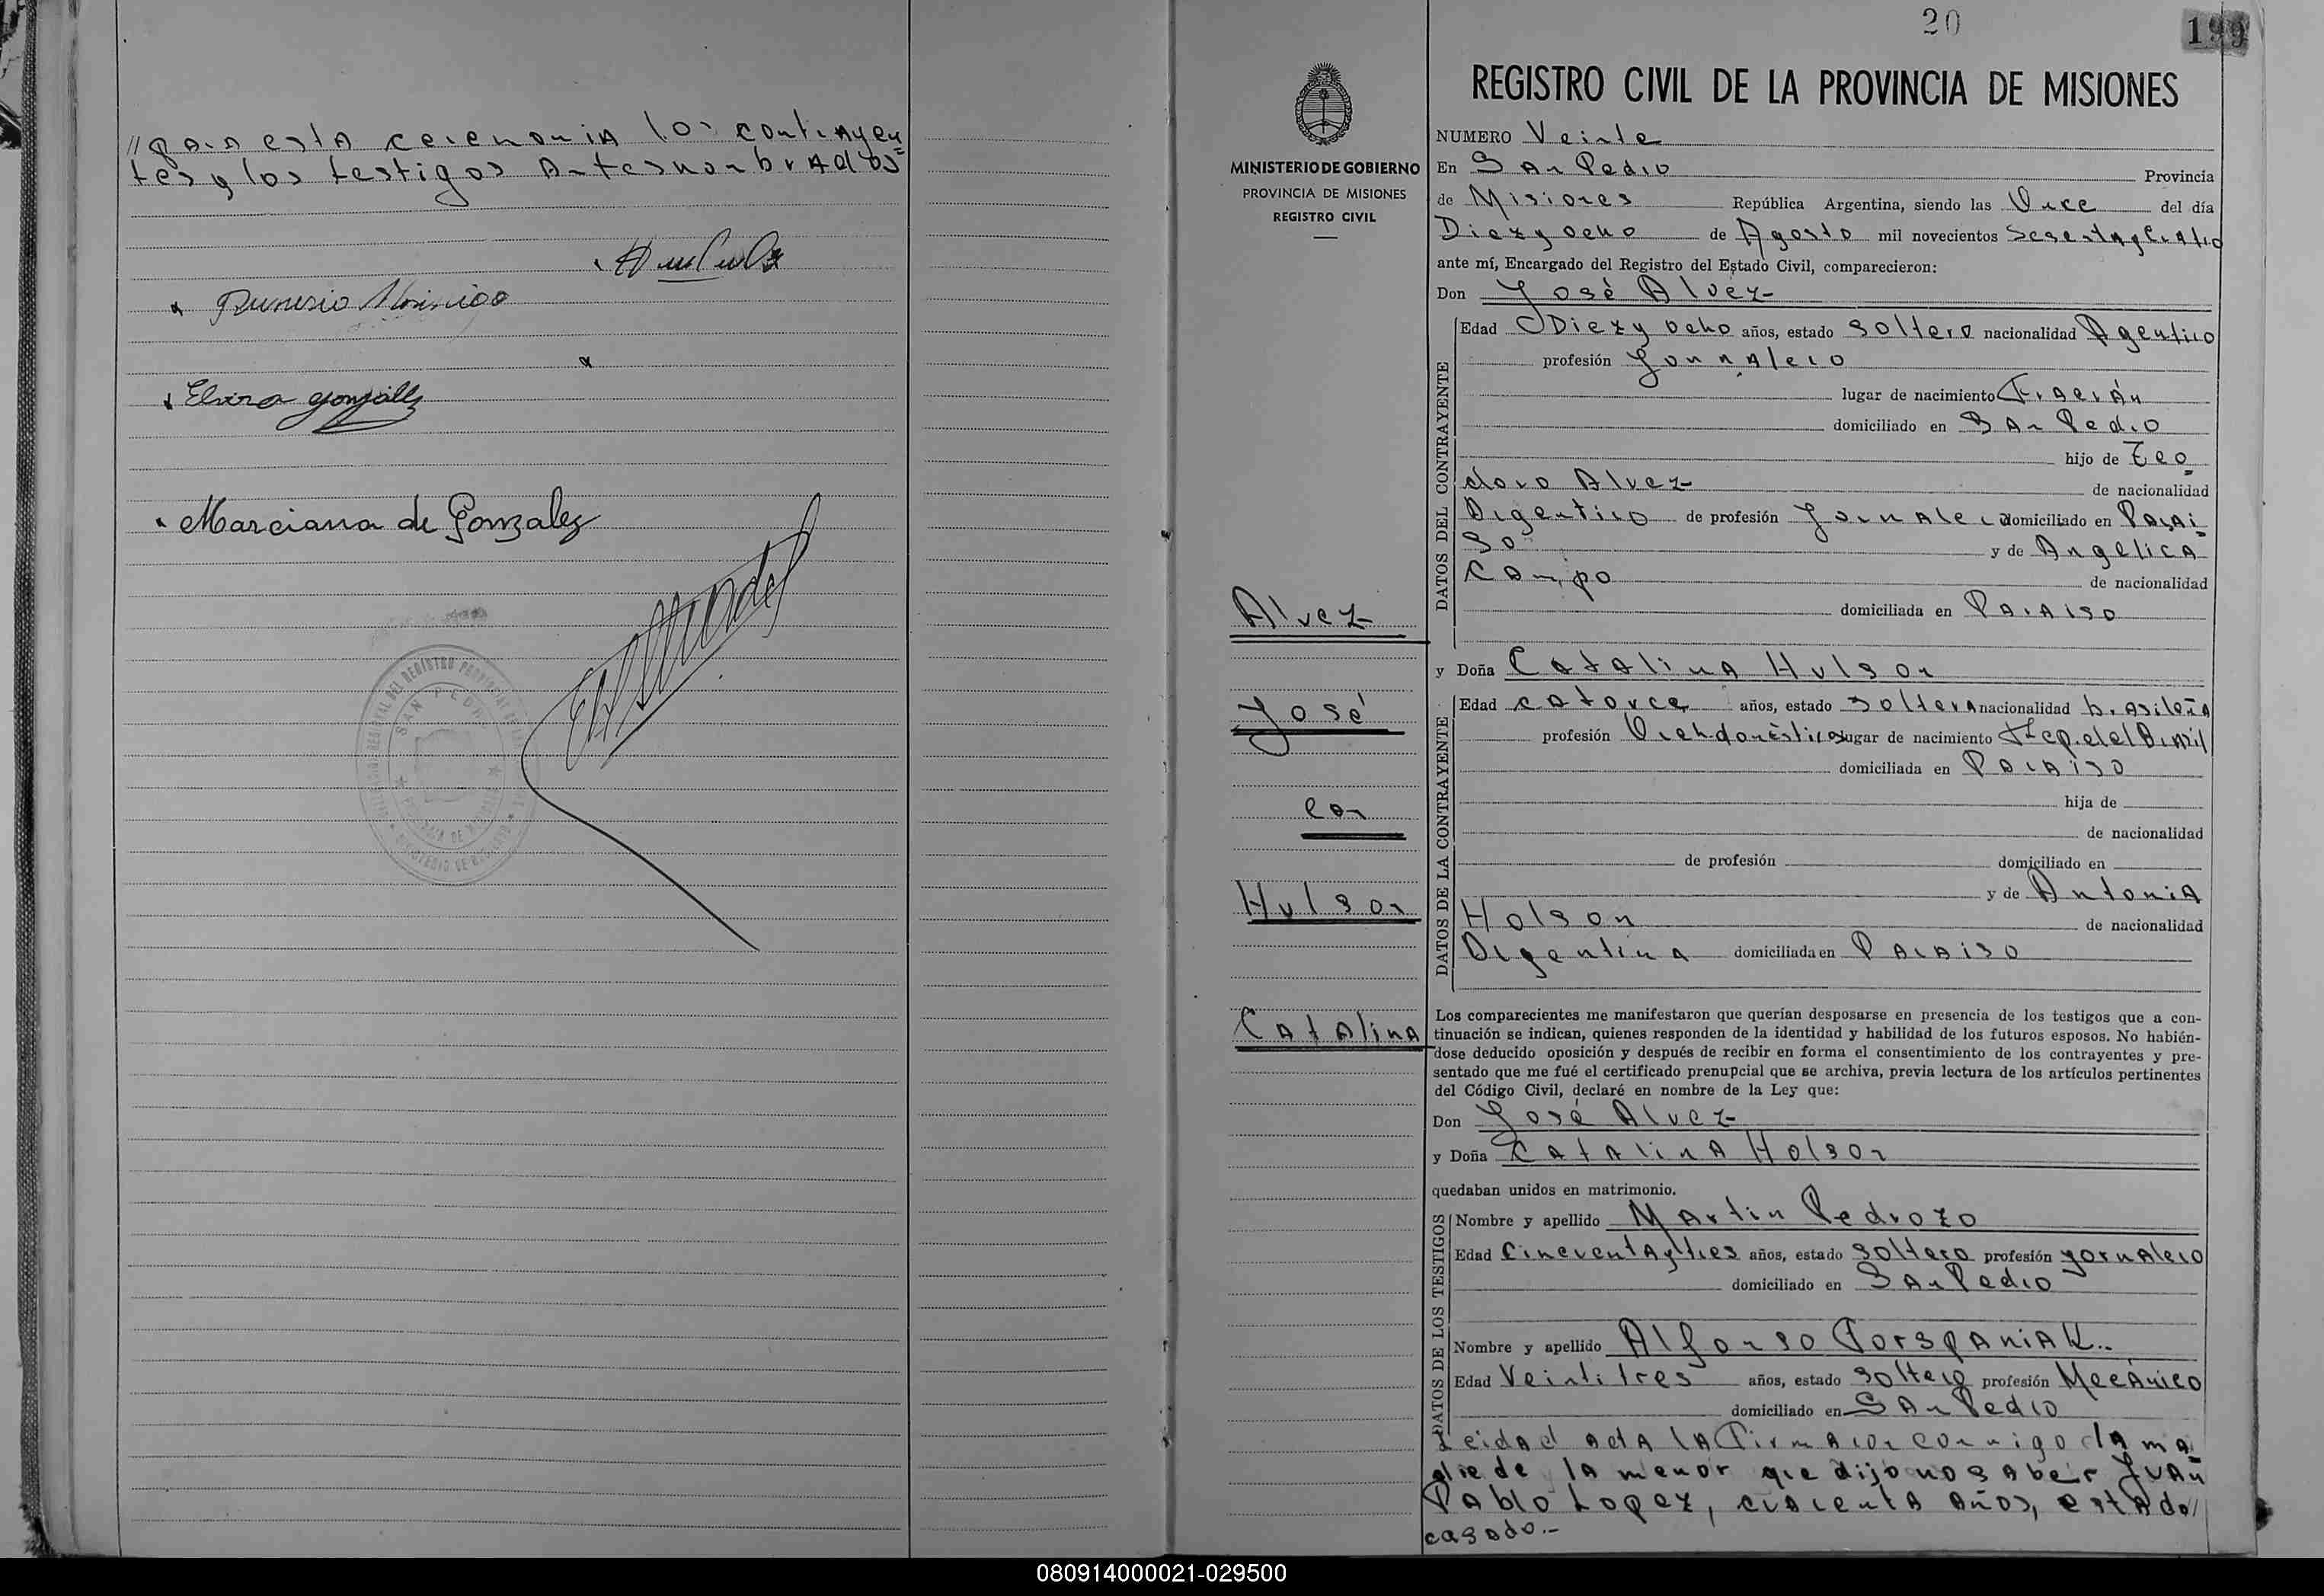 // para esta ceremonia los contrayen=
tes y los testigos antesnombrados
Elvira Gonzalez
Marciana de Gonzalez
SAN PEDRO
20
199
REGISTRO CIVIL DE LA PROVINCIA DE MISIONES
MINISTERIO DE GOBIERNO
PROVINCIA DE MISIONES
REGISTRO CIVIL
NUMERO Veinte
En San Pedro Provincia
de Misiones República Argentina, siendo las Once del día
Diez y ocho de Agosto mil novecientos Sesentaycuatro
ante mí, Encargado del Registro del Estado Civil, comparecieron:
Don José Alvez
DATOS DEL CONTRAYENTE
Edad Diez y ocho años, estado soltero nacionalidad Agentino
profesión Jornalero
lugar de nacimiento Fracrán
domiciliado en San Pedro
hijo de Teo=
doro Alvez de nacionalidad
Argentino de profesión Jornalero domiciliado en Parai=
so y de Angelica
Campo de nacionalidad
domiciliada en Paraiso
Alvez
José
con
Hulson
Catalina
y Doña Catalina Hulson
DATOS DE LA CONTRAYENTE
Edad catorce años, estado soltera nacionalidad brasileña
profesión Queh.domèsticos lugar de nacimiento Rep.del Brasil
domiciliada en Paraiso
hija de
de nacionalidad
de profesión domiciliado en
y de Antonia
Holson de nacionalidad
Argentina domiciliada en Paraiso
Los comparecientes me manifestaron que querían desposarse en presencia de los testigos que a con-
tinuación se indican, quienes responden de la identidad y habilidad de los futuros esposos. No habién-
dose deducido oposición y después de recibir en forma el consentimiento de los contrayentes y pre-
sentado que me fué el certificado prenupcial que se archiva, previa lectura de los artículos pertinentes
del Código Civil, declaré en nombre de la Ley que:
Don José Alvez
y Doña Catalina Holson
quedaban unidos en matrimonio.
DATOS DE LOS TESTIGOS
Nombre y apellido Martin Pedrozo
Edad Cincuentaytres años, estado soltero profesión jornalero
domiciliado en San Pedro
Nombre y apellido Alfonso Torspaniak..
Edad Veintitres años, estado soltero profesión Mecánico
domiciliado en San Pedro
Leida el acta la firmaron conmigo la ma=
dre de la menor que dijo no saber Juan
Pablo Lopez, cuarenta años, estado//
casado.-
080914000021-029500